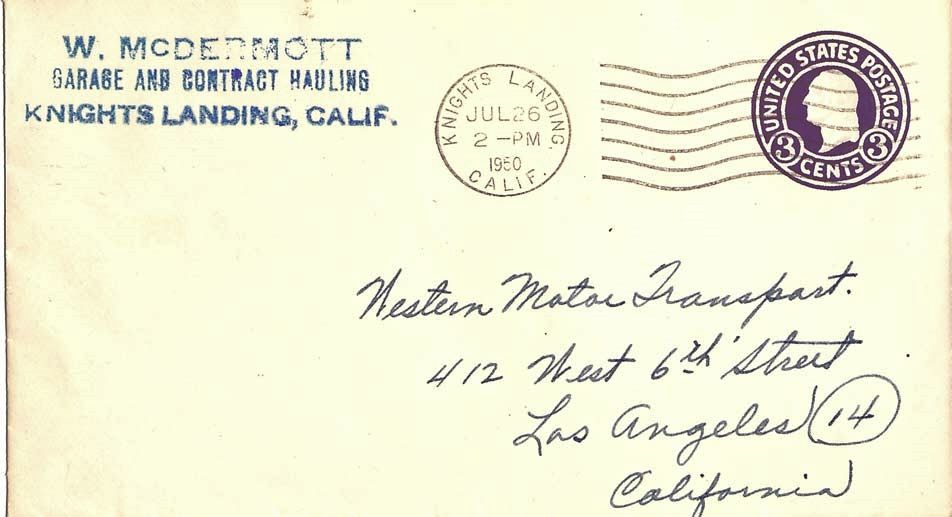 W. McDERMOTT
GARAGE AND CONTRACT HAULING
KNIGHTS LANDING, CALIF.
KNIGHTS LANDING,
JUL 26
2 - PM
1950
CALIF.
UNITED STATES POSTAGE
3 CENTS 3
Western Motor Transport.
412 West 6th Street
Los Angeles 14
California